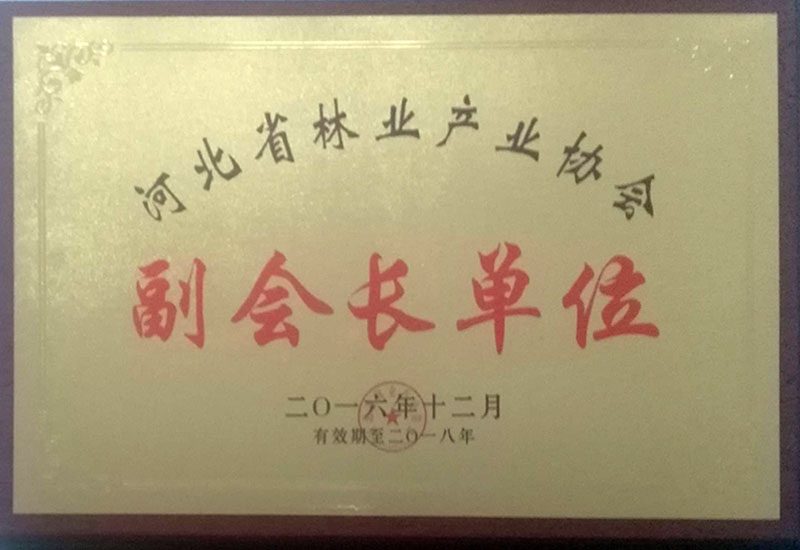 河北省林业产业协会
副会长单位
二〇一六年十二月
有效期至二〇一八年